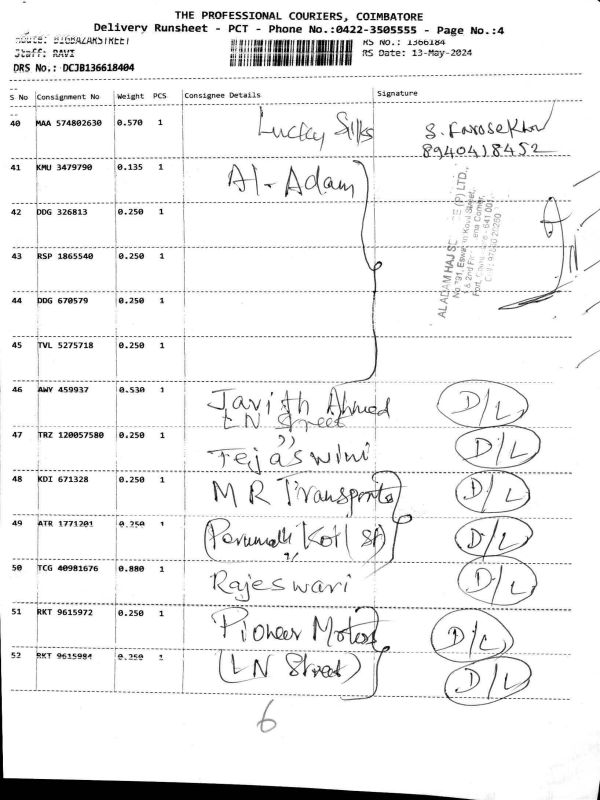 THE PROFESSIONAL COURIERS, COIMBATORE
Delivery Runsheet - PCT - Phone No.:0422-3505555 - Page No.:4
Route: BIGBAZARSTREET RS No.: 1366184
Staff: RAVI RS Date: 13-May-2024
DRS No.: DCJB136618404
S No Consignment No Weight PCS Consignee Details Signature
40 MAA 574802630 0.570 1 Lucky Silks
8940418452
41 KMU 3479790 0.135 1 Al-Adam
42 DDG 326813 0.250 1
43 RSP 1865540 0.250 1
44 DDG 670579 0.250 1
45 TVL 5275718 0.250 1
AL ADAM HAJ (P) LTD.,
46 AWY 459937 0.530 1 Javith Ahmed D/L
LN Street
47 TRZ 120057580 0.250 1 Tejaswini D/L
48 KDI 671328 0.250 1 M R Transports D/L
49 ATR 1771201 0.250 1 D/L
50 TCG 40981676 0.880 1 Rajeswari D/L
51 RKT 9615972 0.250 1 Pioneer Motors D/L
52 RKT 9615984 0.250 1 (LN Street) D/L
6